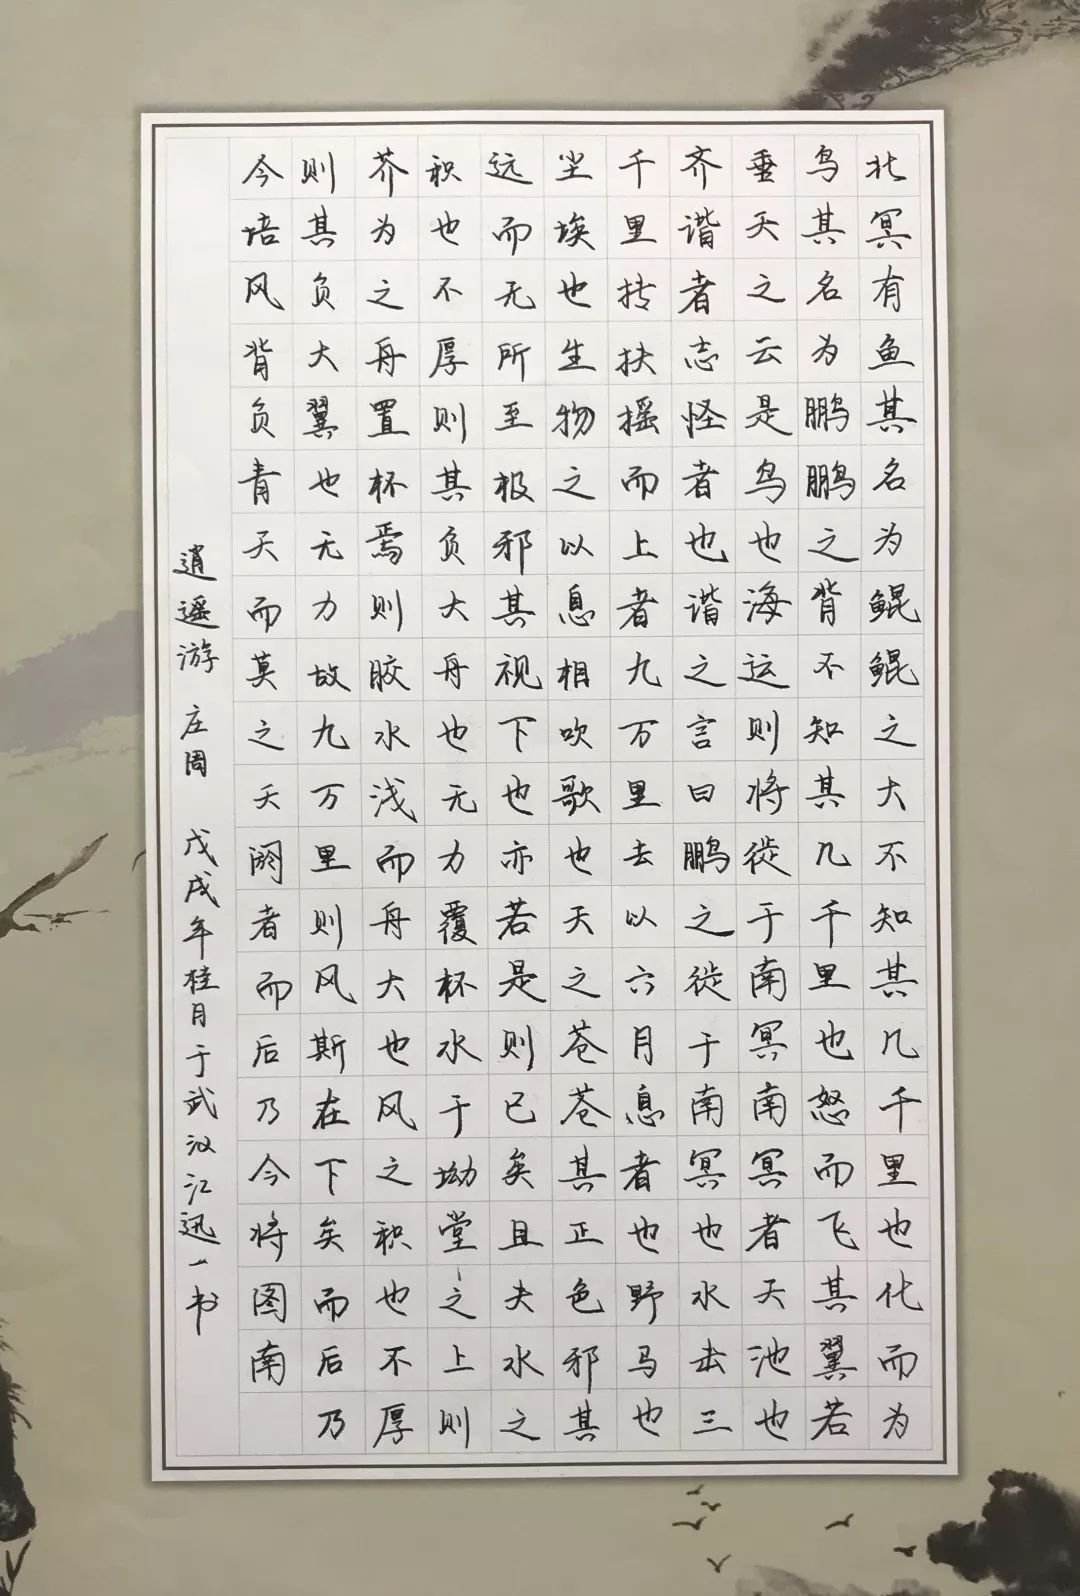 北冥有鱼其名为鲲鲲之大不知其几千里也化而为
鸟其名为鹏鹏之背不知其几千里也怒而飞其翼若
垂天之云是鸟也海运则将徙于南冥南冥者天池也
齐谐者志怪者也谐之言曰鹏之徙于南冥也水去三
千里抟扶摇而上者九万里去以六月息者也野马也
尘埃也生物之以息相吹歌也天之苍苍其正色邪其
远而无所至极邪其视下也亦若是则已矣且夫水之
积也不厚则其负大舟也无力覆杯水于坳堂之上则
芥为之舟置杯焉则胶水浅而舟大也风之积也不厚
则其负大翼也无力故九万里则风斯在下矣而后乃
今培风背负青天而莫之夭阏者而后乃今将图南
逍遥游 庄周 戊戌年桂月于武汉江迅一书